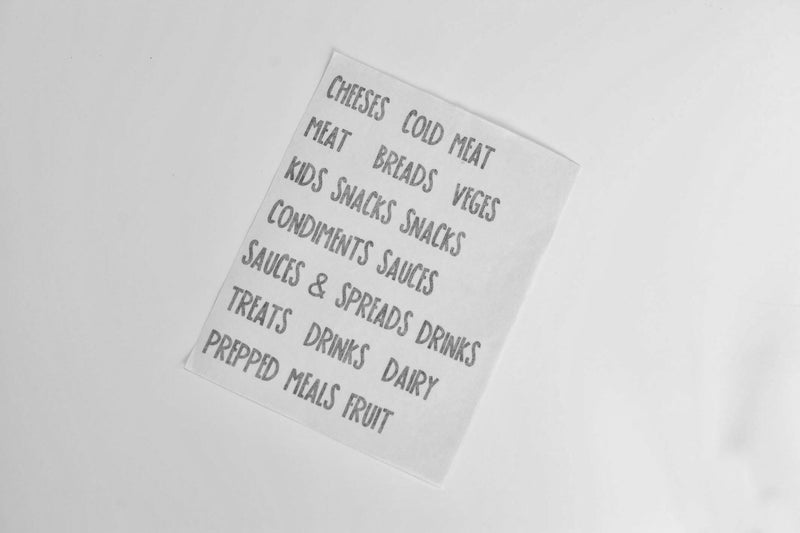 CHEESES COLD MEAT
MEAT BREADS VEGES
KIDS SNACKS SNACKS
CONDIMENTS SAUCES
SAUCES & SPREADS DRINKS
TREATS DRINKS DAIRY
PREPPED MEALS FRUIT